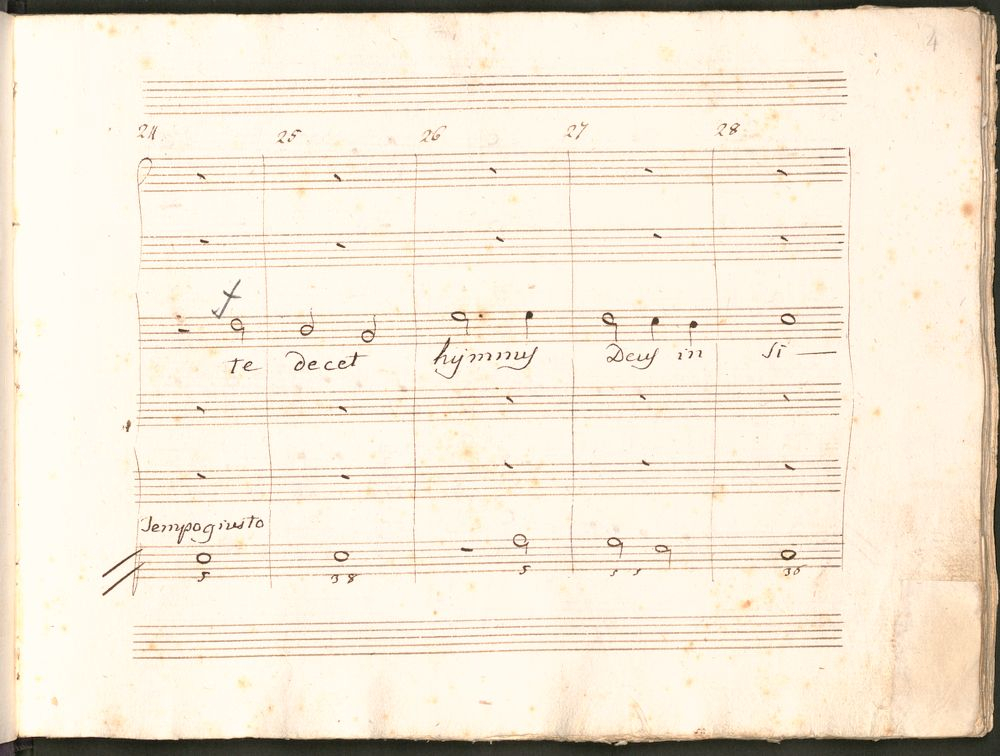 4
24 25 26 27 28
f
te decet hymnus Deus in Si —
Tempo giusto
5 3 8 5 5 5 36